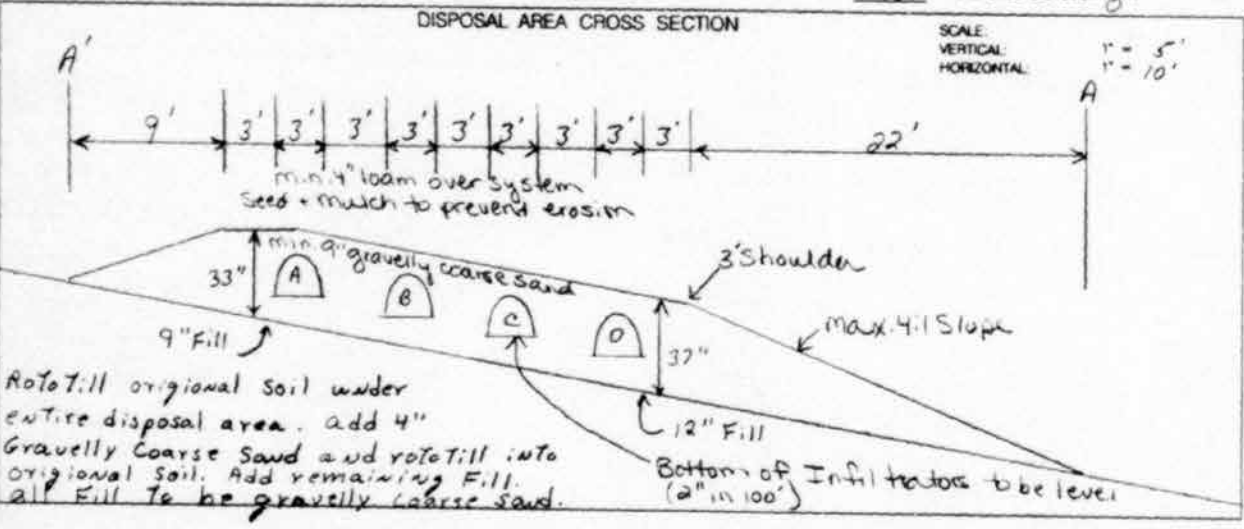 DISPOSAL AREA CROSS SECTION
SCALE:
VERTICAL: 1" = 5'
HORIZONTAL: 1" = 10'
A'
A
9' 3' 3' 3' 3' 3' 3' 3' 3' 3' 22'
min. 4" loam over system
Seed + mulch to prevent erosion
min. 9" gravelly coarse sand
33"
A
B
C
D
3' Shoulder
37"
max. 4:1 Slope
9" Fill
12" Fill
RotoTill origional Soil under
entire disposal area. add 4"
Gravelly Coarse Sand and rototill into
origional Soil. Add remaining Fill.
all Fill To be gravelly coarse sand.
Bottom of Infiltrators to be level
(2" in 100')